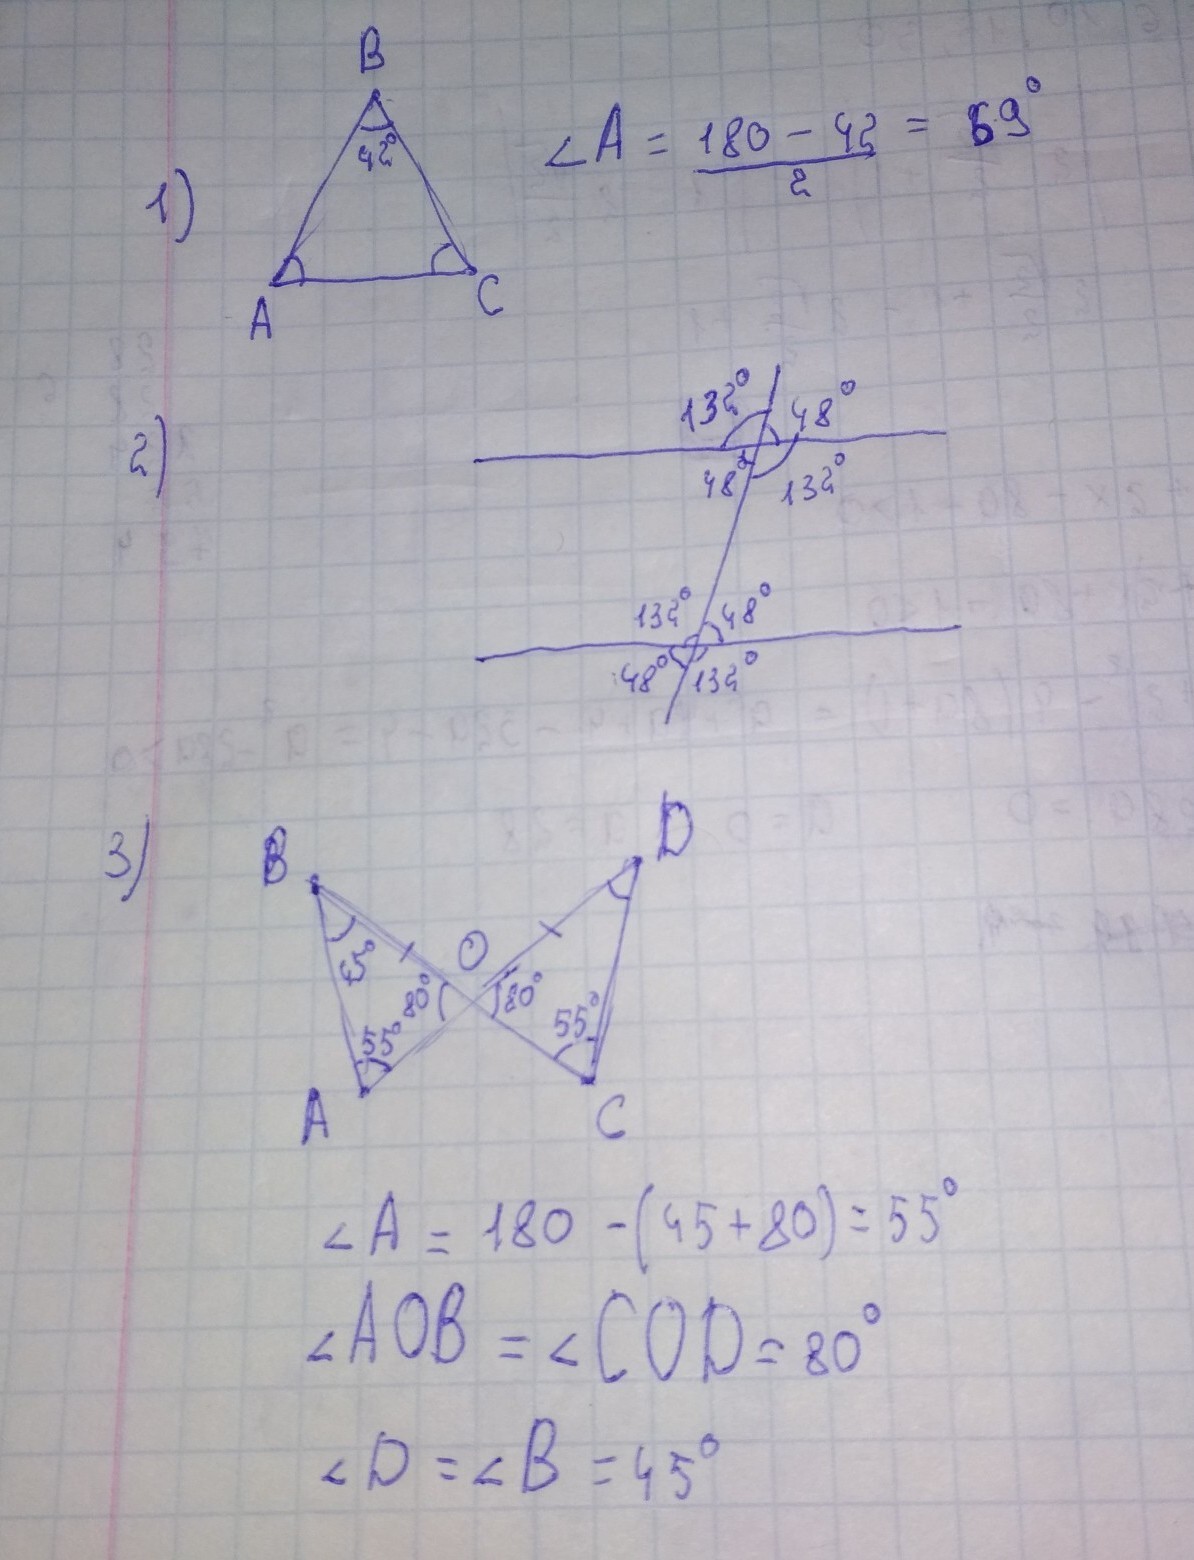 1)
B
42°
A
C
∠A = (180 − 42)/2 = 69°
2)
132° 48°
48° 132°
132° 48°
48° 132°
3)
B
D
O
45°
80° 80°
55° 55°
A
C
∠A = 180 − (45 + 80) = 55°
∠AOB = ∠COD = 80°
∠D = ∠B = 45°